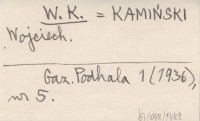 W. K. = KAMIŃSKI
Wojciech.
Gaz. Podhala 1 (1936),
nr 5.